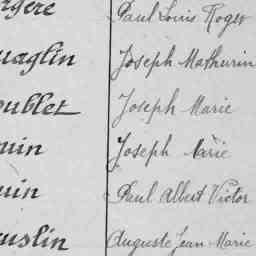 rgère Paul Louis Roger
uaglin Joseph Mathurin
oublet Joseph Marie
uin Joseph Marie
uin Paul Albert Victor
uslin Auguste Jean Marie